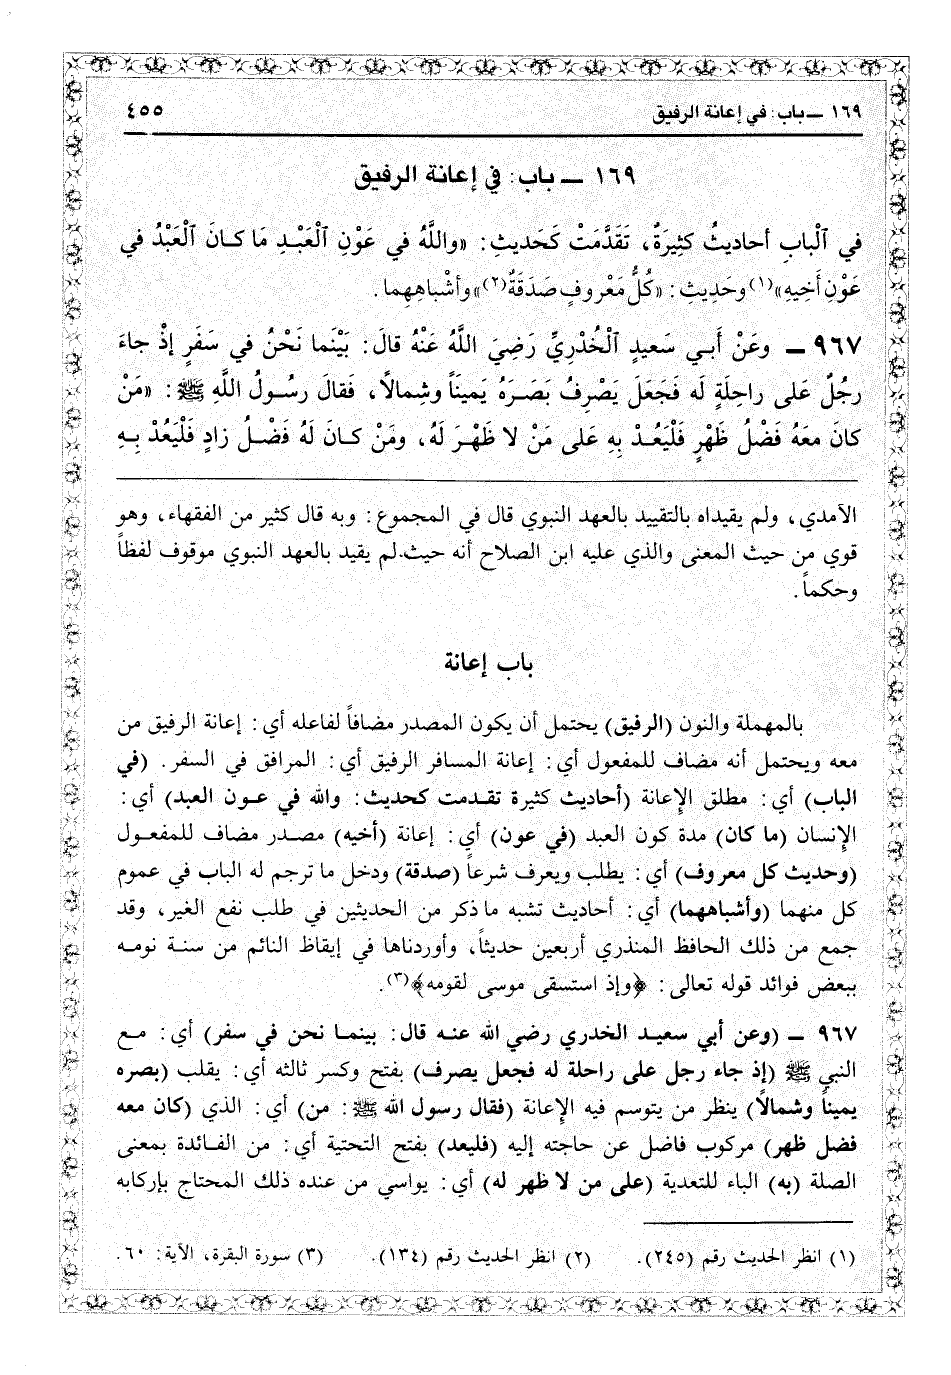 ١٦٩ ــ باب: في إعانة الرفيق
٤٥٥
١٦٩ ــ باب: في إعانة الرفيق
في ٱلْبابِ أحاديثُ كثِيرَةٌ، تَقَدَّمَتْ كَحَديثِ: «واللَّهُ في عَوْنِ ٱلْعَبْدِ مَا كانَ ٱلْعَبْدُ في
عَوْنِ أَخِيهِ»(١) وحَدِيث: «كُلُّ مَعْرُوفٍ صَدَقَةٌ(٢)» وأشْباهِهِما.
٩٦٧ ــ وعَنْ أَبي سَعيدٍ ٱلْخُدْرِيِّ رَضِيَ اللَّهُ عَنْهُ قالَ: بَيْنَما نَحْنُ في سَفَرٍ إذْ جاءَ
رجُلٌ عَلى راحِلَةٍ لَه فَجَعَلَ يَصْرِفُ بَصَرَهُ يَميناً وشِمالاً، فَقالَ رسُولُ اللَّهِ ﷺ: «مَنْ
كانَ معَهُ فَضْلُ ظَهْرٍ فَلْيَعُدْ بِهِ عَلى مَنْ لا ظَهْرَ لَهُ، ومَنْ كانَ لَهُ فَضْلُ زادٍ فَلْيَعُدْ بِهِ
الآمدي، ولم يقيداه بالتقييد بالعهد النبوي قال في المجموع: وبه قال كثير من الفقهاء، وهو
قوي من حيث المعنى والذي عليه ابن الصلاح أنه حيث لم يقيد بالعهد النبوي موقوف لفظاً
وحكماً.
باب إعانة
بالمهملة والنون (الرفيق) يحتمل أن يكون المصدر مضافاً لفاعله أي: إعانة الرفيق من
معه ويحتمل أنه مضاف للمفعول أي: إعانة المسافر الرفيق أي: المرافق في السفر. (في
الباب) أي: مطلق الإعانة (أحاديث كثيرة تقدمت كحديث: والله في عون العبد) أي:
الإنسان (ما كان) مدة كون العبد (في عون) أي: إعانة (أخيه) مصدر مضاف للمفعول
(وحديث كل معروف) أي: يطلب ويعرف شرعاً (صدقة) ودخل ما ترجم له الباب في عموم
كل منهما (وأشباههما) أي: أحاديث تشبه ما ذكر من الحديثين في طلب نفع الغير، وقد
جمع من ذلك الحافظ المنذري أربعين حديثاً، وأوردناها في إيقاظ النائم من سنة نومه
ببعض فوائد قوله تعالى: ﴿وإذ استسقى موسى لقومه﴾(٣).
٩٦٧ ــ (وعن أبي سعيد الخدري رضي الله عنه قال: بينما نحن في سفر) أي: مع
النبي ﷺ (إذ جاء رجل على راحلة له فجعل يصرف) بفتح وكسر ثالثه أي: يقلب (بصره
يميناً وشمالاً) ينظر من يتوسم فيه الإعانة (فقال رسول الله ﷺ: من) أي: الذي (كان معه
فضل ظهر) مركوب فاضل عن حاجته إليه (فليعد) بفتح التحتية أي: من الفائدة بمعنى
الصلة (به) الباء للتعدية (على من لا ظهر له) أي: يواسي من عنده ذلك المحتاج بإركابه
(١) انظر الحديث رقم (٢٤٥). (٢) انظر الحديث رقم (١٣٤). (٣) سورة البقرة، الآية: ٦٠.